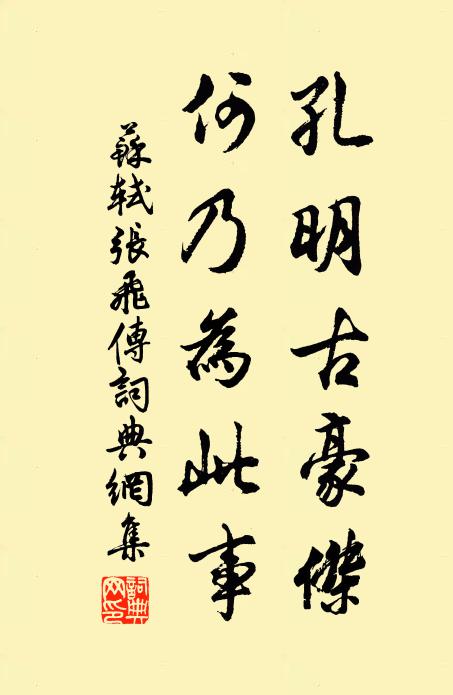 孔明古豪傑
何乃為此事
蘇軾張飛傳詞典網集
詞典網印